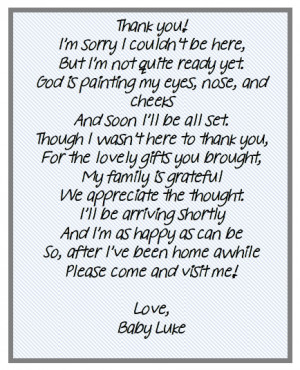 Thank you!
I'm sorry I couldn't be here,
But I'm not quite ready yet.
God is painting my eyes, nose, and
cheeks
And soon I'll be all set.
Though I wasn't here to thank you,
For the lovely gifts you brought,
My family is grateful
We appreciate the thought.
I'll be arriving shortly
And I'm as happy as can be
So, after I've been home awhile
Please come and visit me!
Love,
Baby Luke